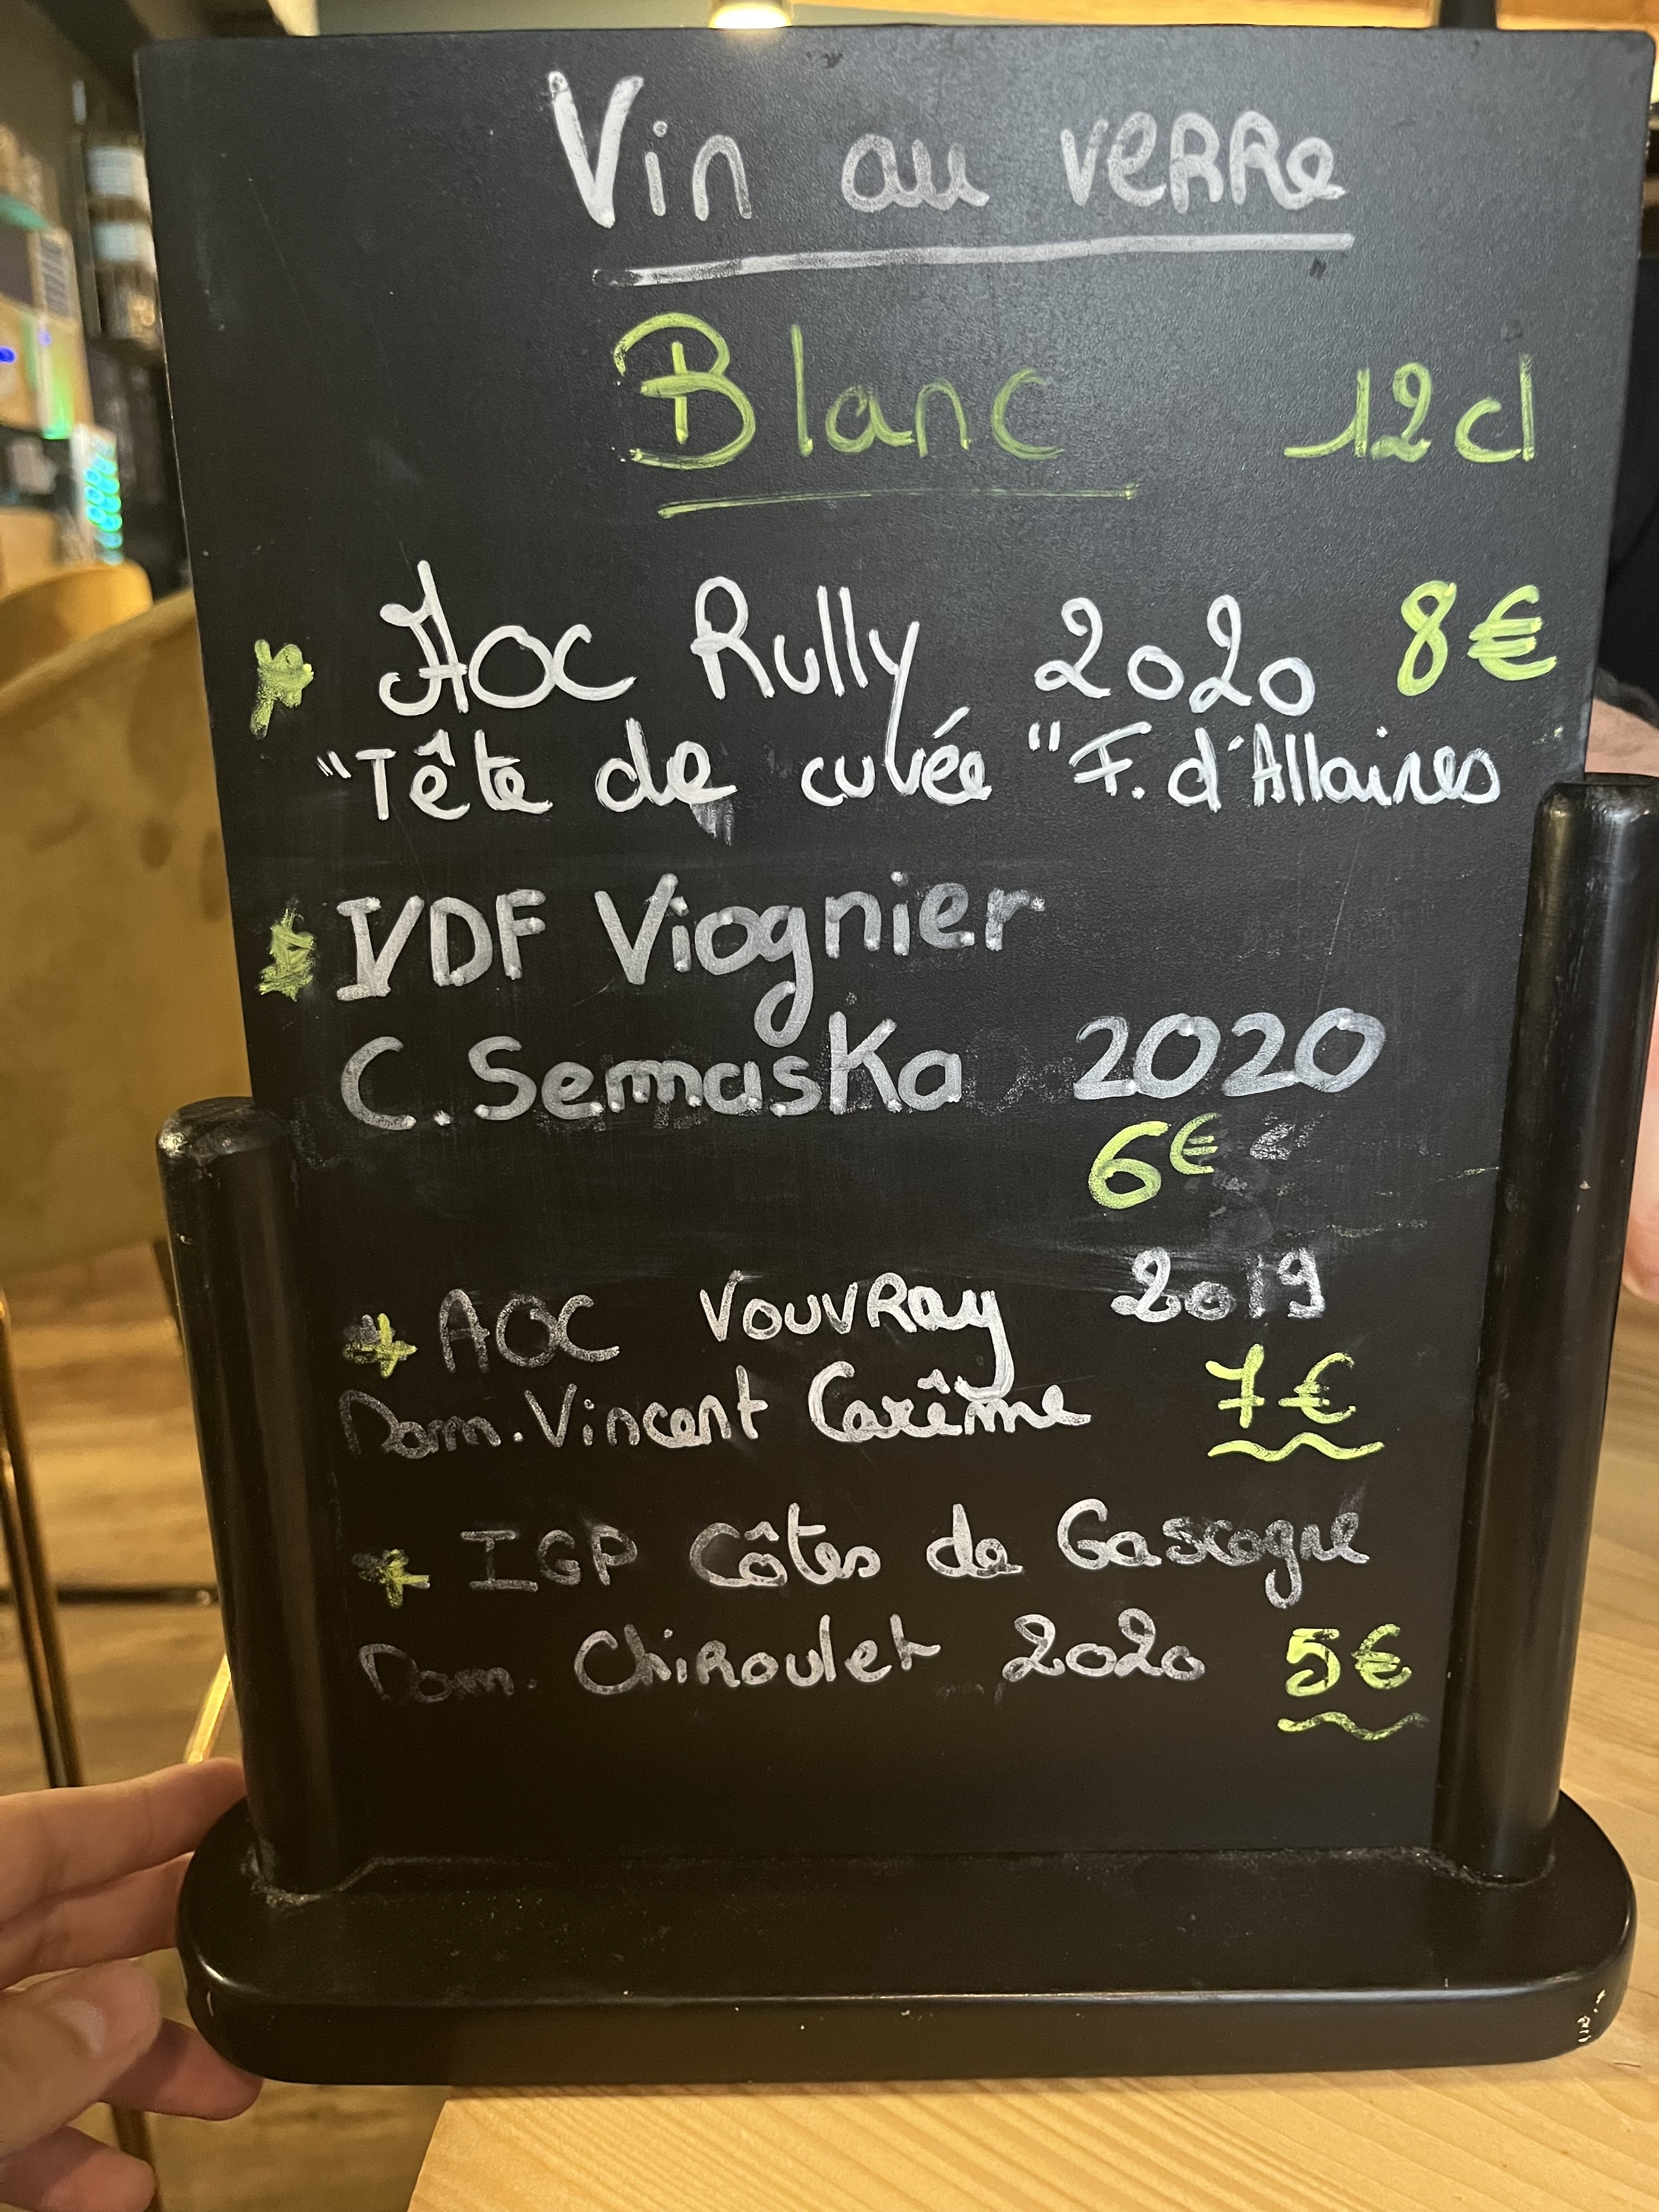 Vin au verre
Blanc 12 cl
AOC Rully 2020 8€
"Tête de cuvée" F. d'Allaines
VDF Viognier
C. Semaska 2020
6€
AOC Vouvray 2019
Dom. Vincent Carême 7€
IGP Côtes de Gascogne
Dom. Chiroulet 2020 5€